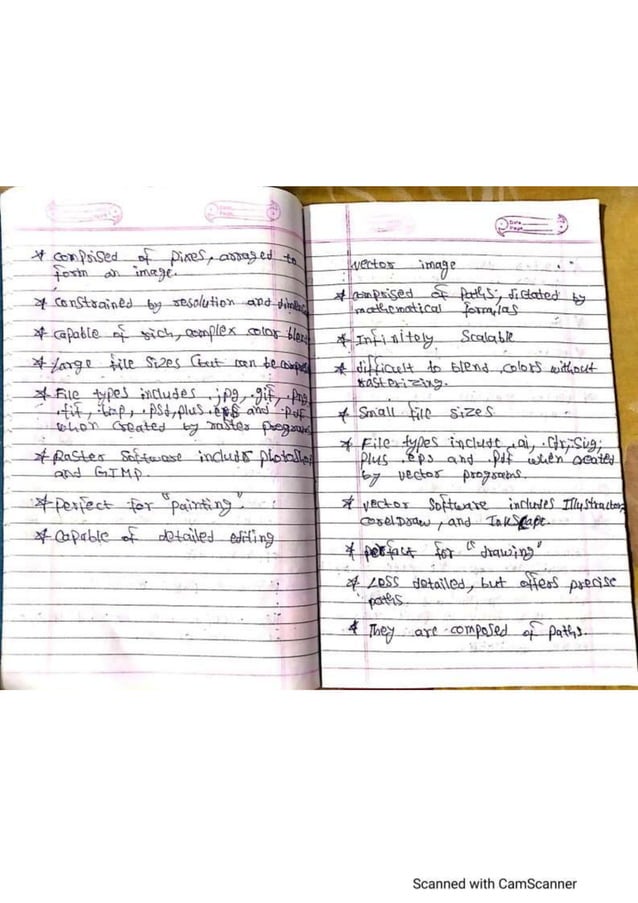 * comprised of pixes, arraged to
form an image.
* constrained by resolution and
* capable of rich, complex color blend
* Large file sizes (but can be
* File types includes .jpg, .gif, .png
.tif, .bmp, .psd, plus .eps and .pdf
when created by raster programs
* Raster software includs photoshop
and GIMP.
* perfect for "painting".
* capable of detailed editing
Date
Page
vector image
* comprised of paths, dictated by
mathematical formulas
* Infinitely Scalable
* difficult to blend colors without
rasterizing.
* Small file sizes
* File types include .ai, .cdr, .svg;
plus .eps and .pdf when created
by vector programs.
* vector software includes Illustrator,
corelDraw, and InkScape.
* perfact for "drawing"
* Less detailed, but offers precise
paths.
* They are composed of paths.
Scanned with CamScanner